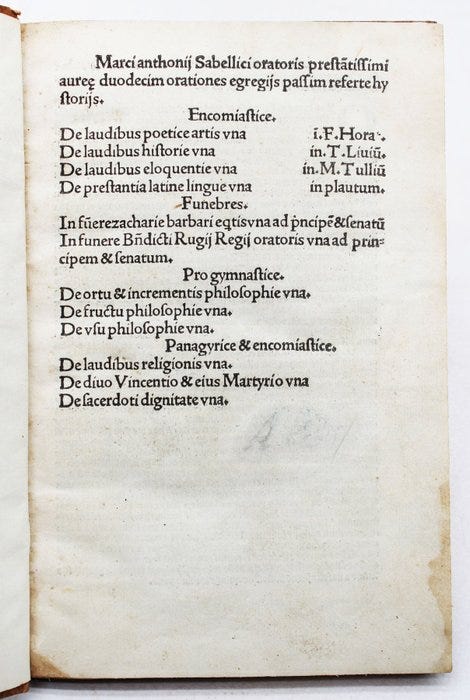 Marci anthonij Sabellici oratoris prestãtissimi
aureę duodecim orationes egregijs passim referte hy
storijs.
Encomiastice.
De laudibus poetice artis vna i.F.Hora.
De laudibus historie vna in.T.Liuiũ.
De laudibus eloquentie vna in.M.Tulliũ
De prestantia latine lingue vna in plautum.
Funebres.
In fũere zacharie barbari eq̃tis vna ad p̃ncipẽ & senatũ
In funere Bñdicti Rugij Regij oratoris vna ad prin=
cipem & senatum.
Pro gymnastice.
De ortu & incrementis philosophie vna.
De fructu philosophie vna.
De vsu philosophie vna.
Panagyrice & encomiastice.
De laudibus religionis vna.
De diuo Vincentio & eius Martyrio vna
De sacerdoti dignitate vna.